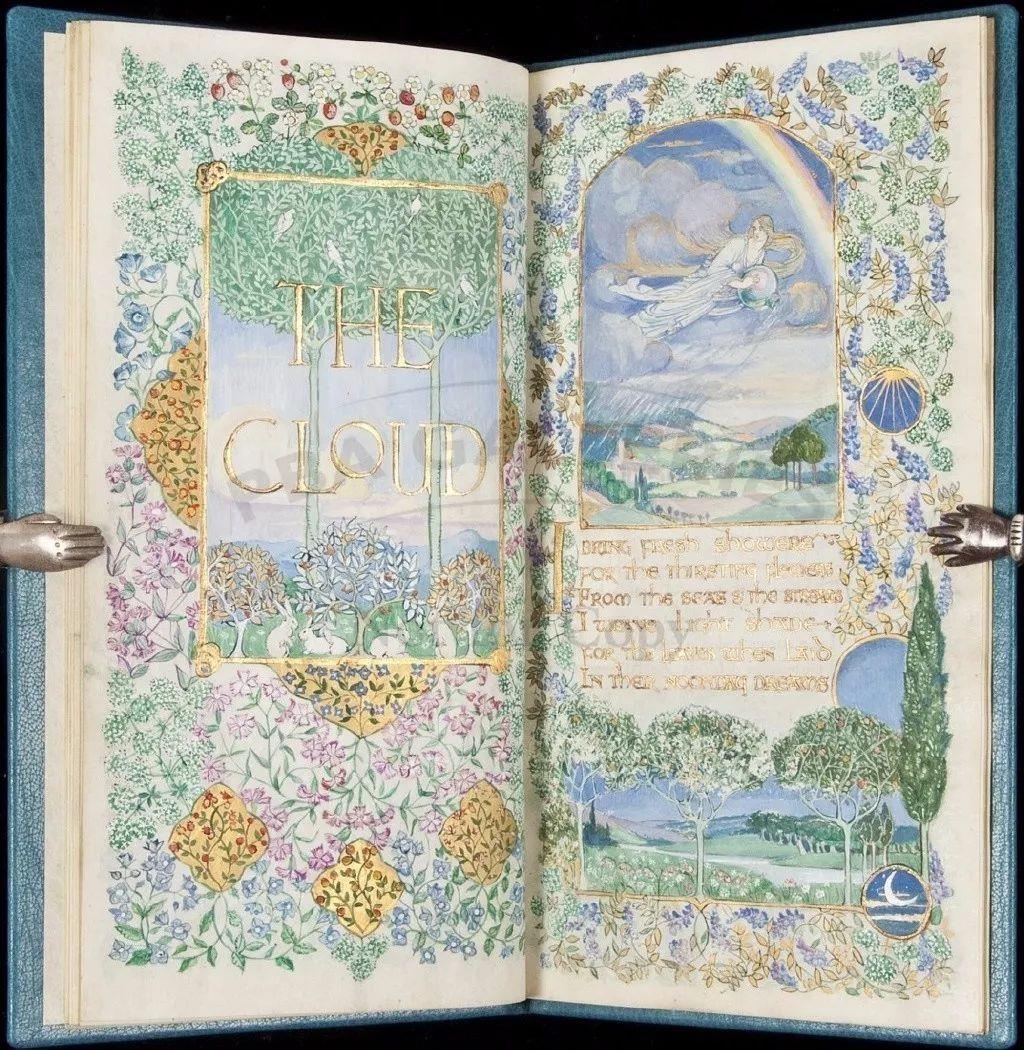 THE
CLOUD
I BRING FRESH SHOWERS
FOR THE THIRSTING FLOWERS
FROM THE SEAS & THE STREAMS
I LIGHT SHADE
FOR THE LEAVES WHEN LAID
IN THEIR NOONDAY DREAMS
PBA GA
Copy